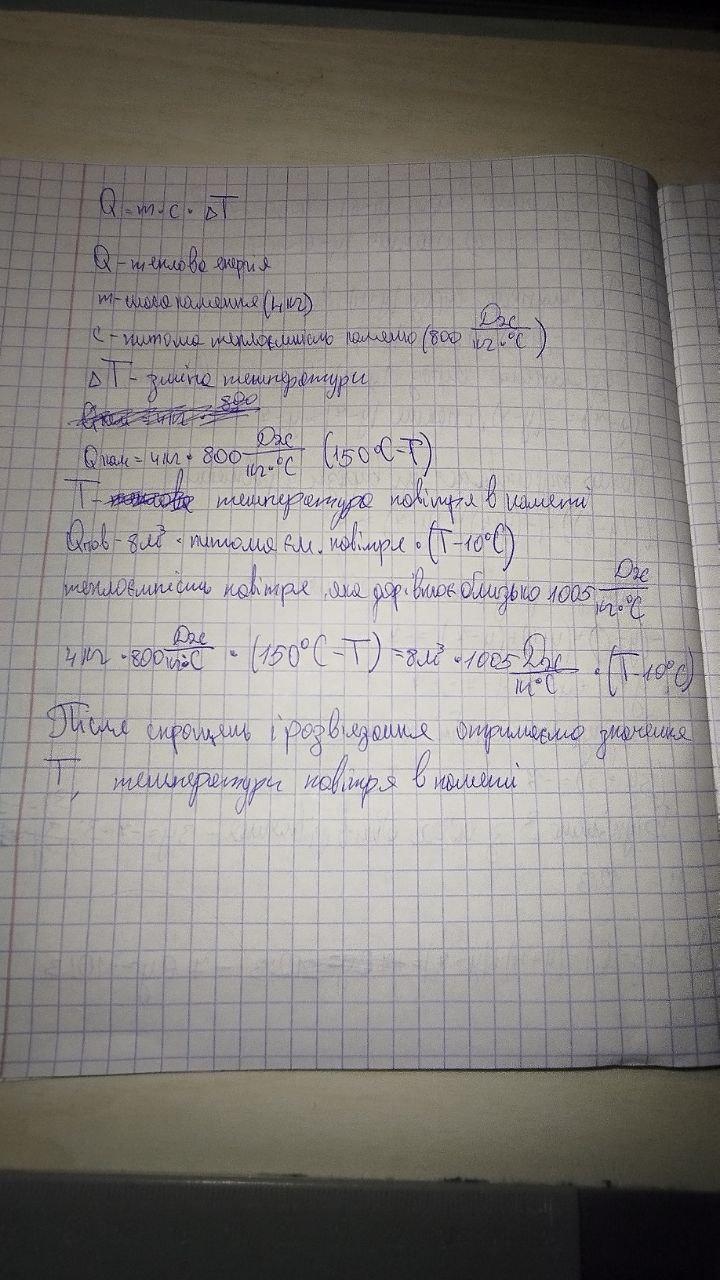 Q = m · c · ΔT
Q - теплова енергія
m - маса каменя (4 кг)
c - питома теплоємність каменю (800 Дж/кг·°C)
ΔT - зміна температури
Qкам = 4 кг · 800 Дж/кг·°C (150°C - T)
T - температура повітря в наметі
Qпов - 8 м³ · питома єм. повітря · (T - 10°C)
теплоємність повітря, яка дорівнює близько 1005 Дж/кг·°C
4 кг · 800 Дж/кг·°C · (150°C - T) = 8 м³ · 1005 Дж/кг·°C · (T - 10°C)
Після спрощень і розв'язання отримаємо значення
T, температури повітря в наметі